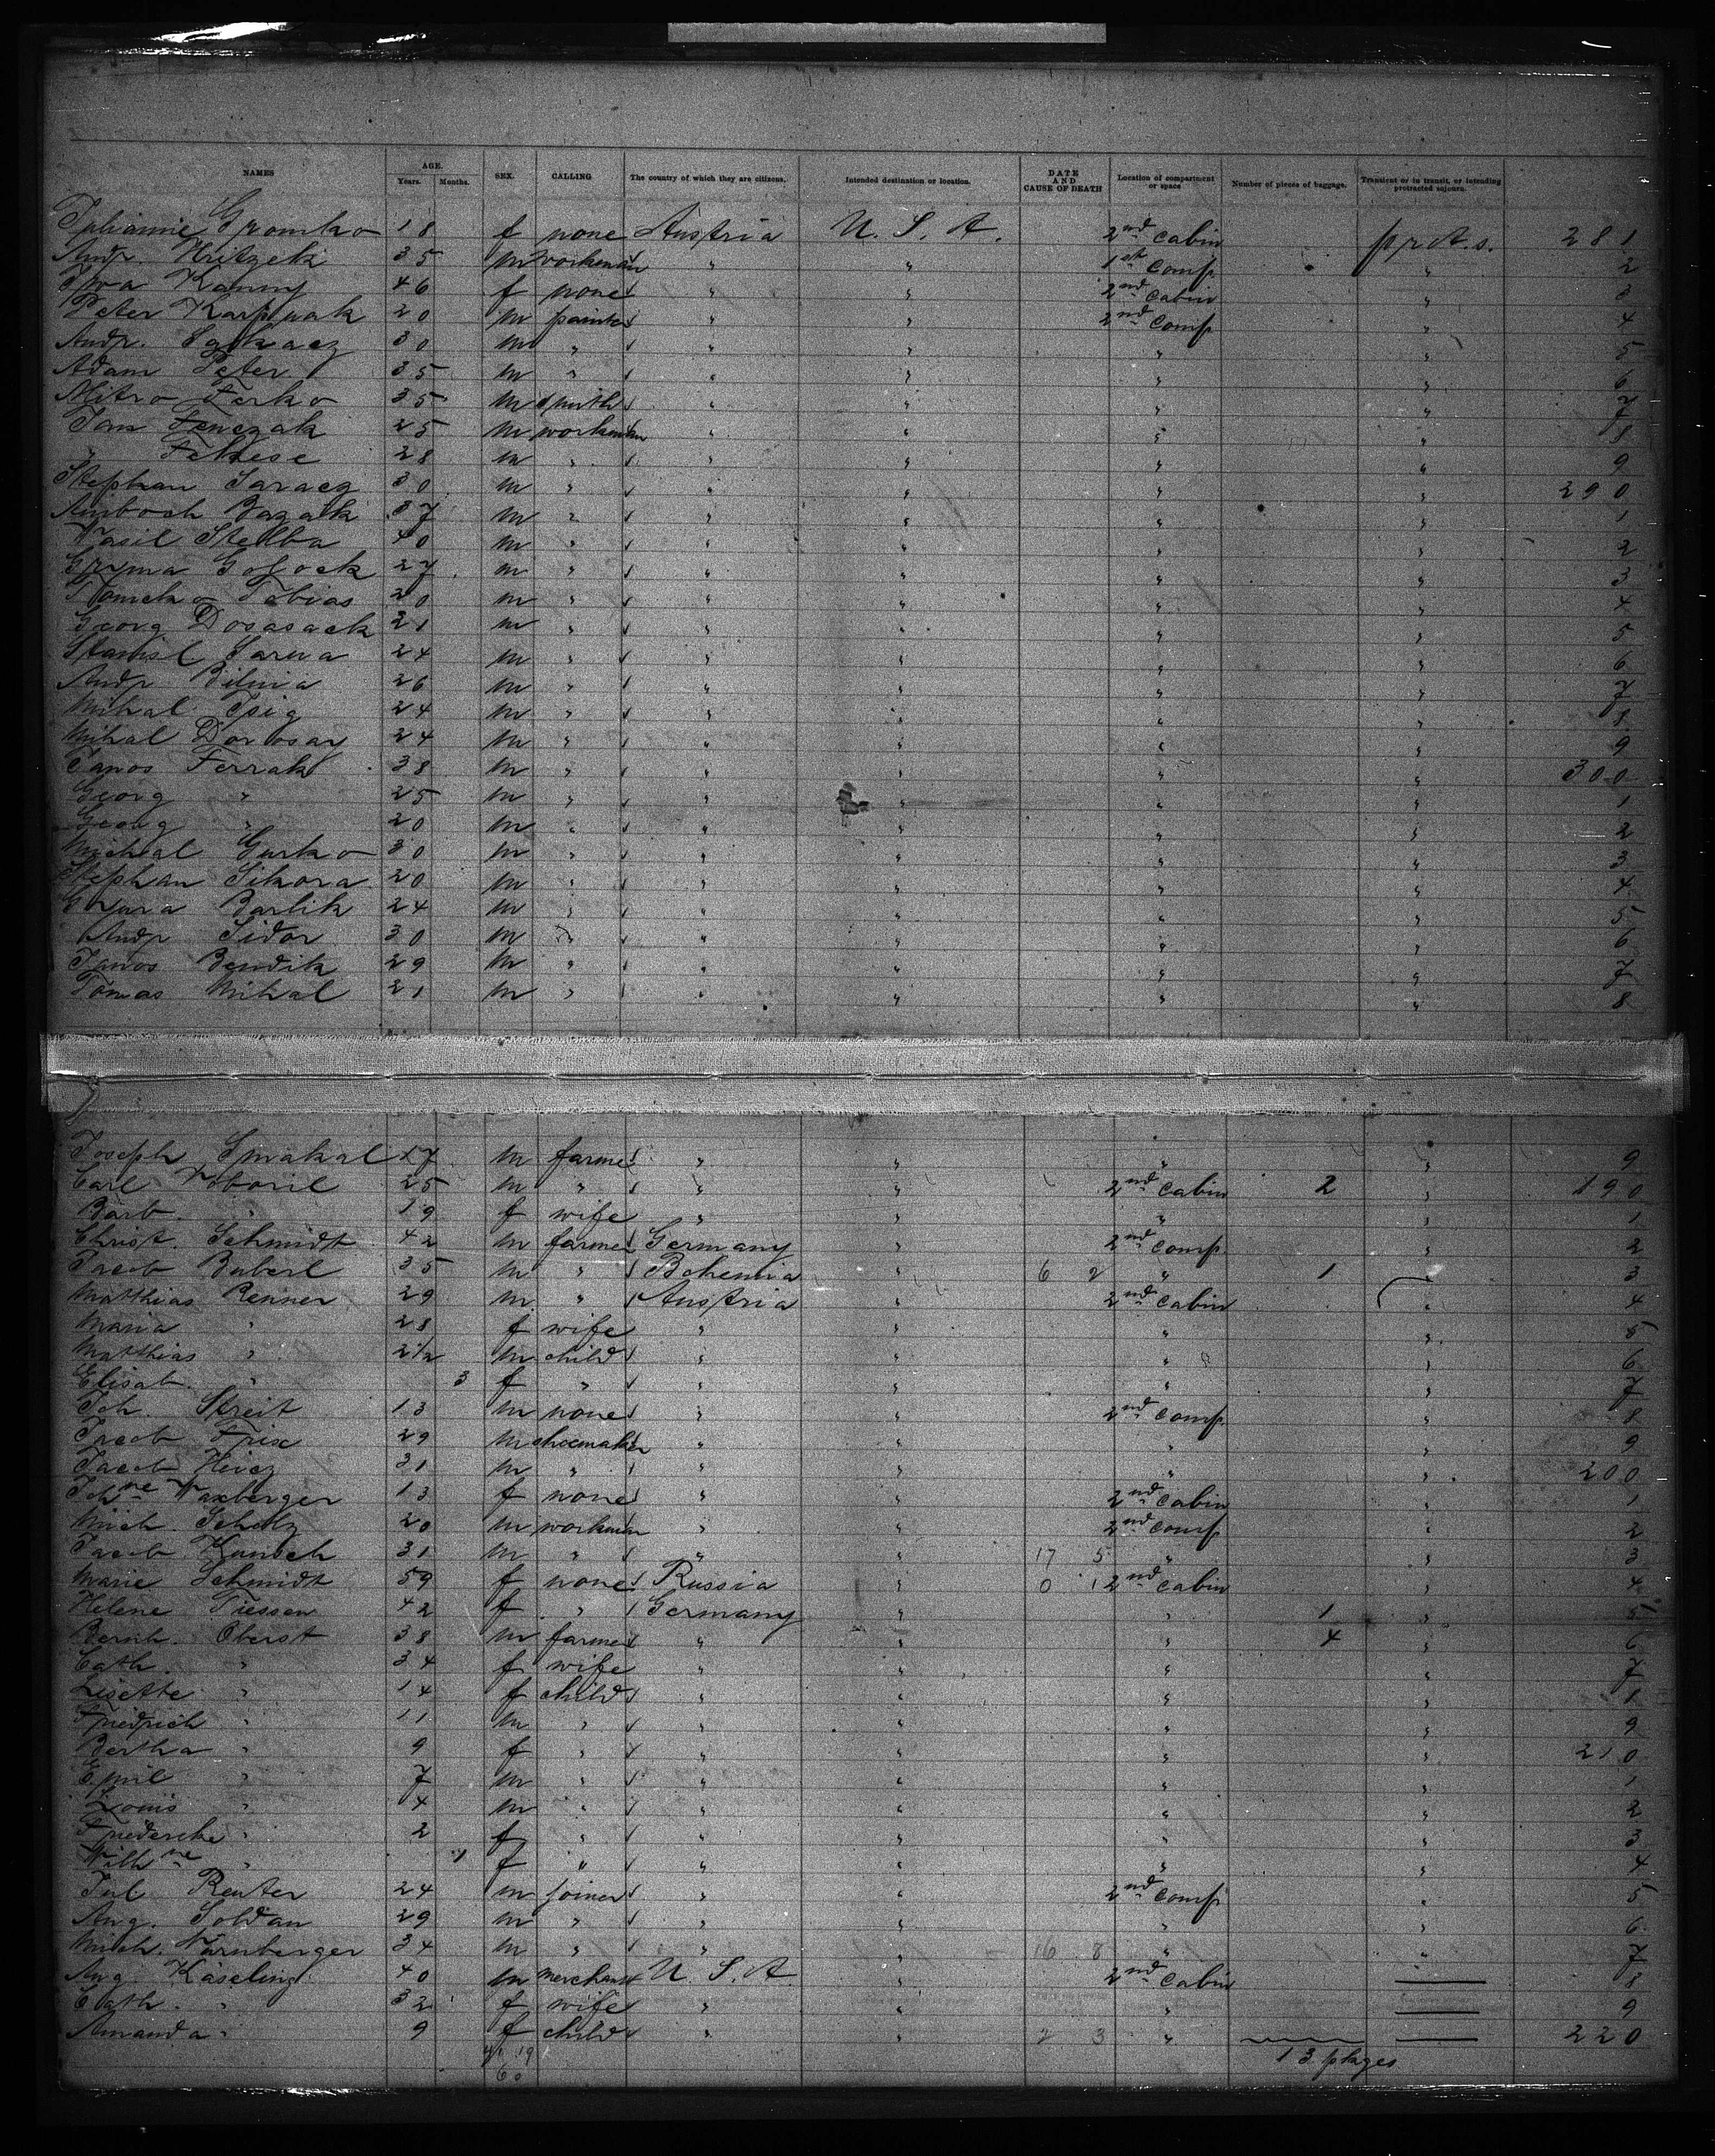 NAMES AGE. Years. Months. SEX. CALLING The country of which they are citizens. Intended destination or location. DATE AND CAUSE OF DEATH Location of compartment or space Number of pieces of baggage. Transient or in transit, or intending protracted sojourn.
Gromko 18 f none Austria U. S. A. 2nd cabin prot. s. 281
Andr. Hritzek 35 m workman " " 1st comp " 2
Kanny 46 f none " " 2nd cabin " 3
Peter Karpuak 20 m painter " " 2nd comp " 4
Andr. 30 m " " " " " 5
Adam Peter 35 m " " " " " 6
Mitro Ferko 35 m smith " " " " 7
Jan Fenczak 25 m workman " " " " 8
" Fekese 28 m " " " " " 9
Stephan Saracz 30 m " " " " " 290
Bazak 37 m " " " " " 1
Wasil Stelba 40 m " " " " " 2
Golock 27 m " " " " " 3
Tobias 20 m " " " " " 4
Georg Dosasack 21 m " " " " " 5
Stanisl Sarna 24 m " " " " " 6
Andr Bilnia 26 m " " " " " 7
Mihal Tsig 24 m " " " " " 8
Mihal Dorosay 24 m " " " " " 9
Janos Ferrak 38 m " " " " " 300
Georg " 25 m " " " " " 1
Georg " 20 m " " " " " 2
Micheal Gurko 30 m " " " " " 3
Stephan Sikora 20 m " " " " " 4
Barlik 24 m " " " " " 5
Andr Sidor 30 m " " " " " 6
Janos Bendik 29 m " " " " " 7
Tomas Mihal 21 m " " " " " 8
Joseph Smakal 27 m farmer " " " " 9
Carl Woboril 25 m " " " 2nd cabin 2 " 190
Barb. " 19 f wife " " " " 1
Christ. Schmidt 42 m farmer Germany " 2nd comp " 2
Jacob Buberl 35 m " Bohemia " 6 2 " 1 " 3
Matthias Renner 29 m " Austria " 2nd cabin " 4
Maria " 28 f wife " " " " 5
Matthias " 2 1/2 m child " " " " 6
Elisab. " 3 f " " " " " 7
Joh. Streit 13 m none " " 2nd comp " 8
Jacob Frix 29 m shoemaker " " " " 9
Jacob Heicz 31 m " " " " " 200
Johne Waxberger 13 f none " " 2nd cabin " 1
Mich. Scholz 20 m workman " " 2nd comp " 2
Jacob Kunsch 31 m " " " 17 5 " " 3
Marie Schmidt 59 f none Russia " 0 1 2nd cabin " 4
Helene Tiessen 42 f " Germany " " 1 " 5
Bernh. Oberst 38 m farmer " " " 4 " 6
Cath. " 34 f wife " " " " 7
Lisette " 14 f child " " " "
Friedrich " 11 m " " " " " 9
Bertha " 9 f " " " " " 210
Emil " 7 m " " " " " 1
Louis " 4 m " " " " " 2
Friedericke " 2 f " " " " " 3
Wilhne " 1 f " " " " " 4
Jul Reuter 24 m joiner " " 2nd comp " 5
Aug. Soldan 29 m " " " " " 6
Mich. Varnberger 34 m " " " 16 8 " " 7
Aug. Käseling 40 m merchant U. S. A " 2nd cabin 8
Cath. " 32 f wife " " " 9
Amanda " 9 f child " " 2 3 " 220
13 plages
60